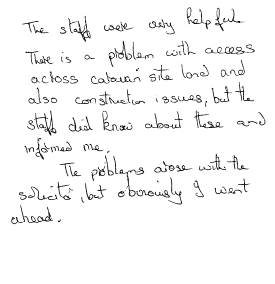 The staff were very helpful.
There is a problem with access
across caravan site land and
also construction issues, but the
staff did know about these and
informed me.
The problems arose with the
solicitor, but obviously I went
ahead.